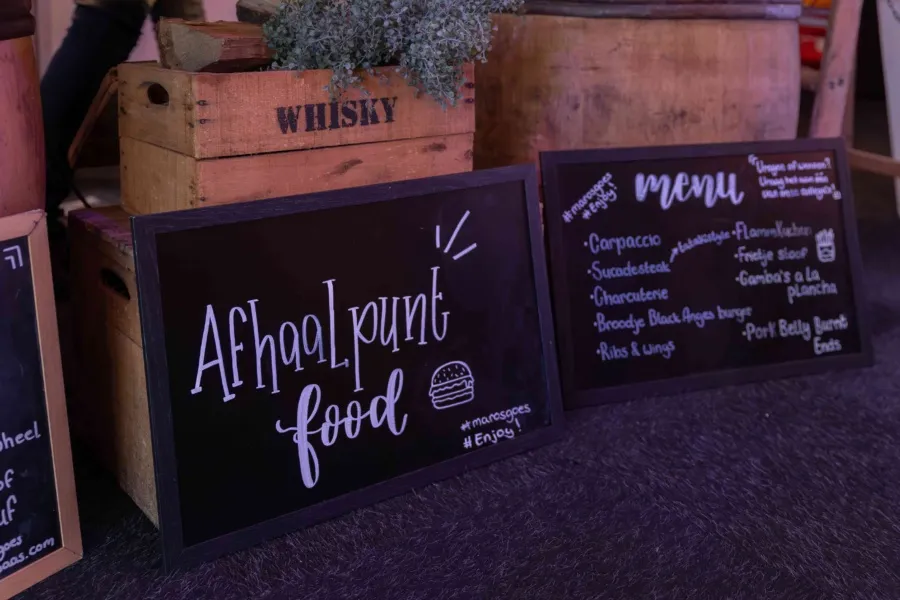 WHISKY
Afhaalpunt
food
#marosgoes
#Enjoy!
#marosgoes
#Enjoy!
menu
"Vragen of wensen?
Vraag het aan één
van onze collega's!
• Carpaccio
• Sucadesteak
• Charcuterie
• Broodje Black Anges burger
• Ribs & wings
• Flammkuchen
• Frietje sloof
• Gamba's a la
plancha
• Pork Belly Burnt
Ends
heel
of
uf
goes
aas.com